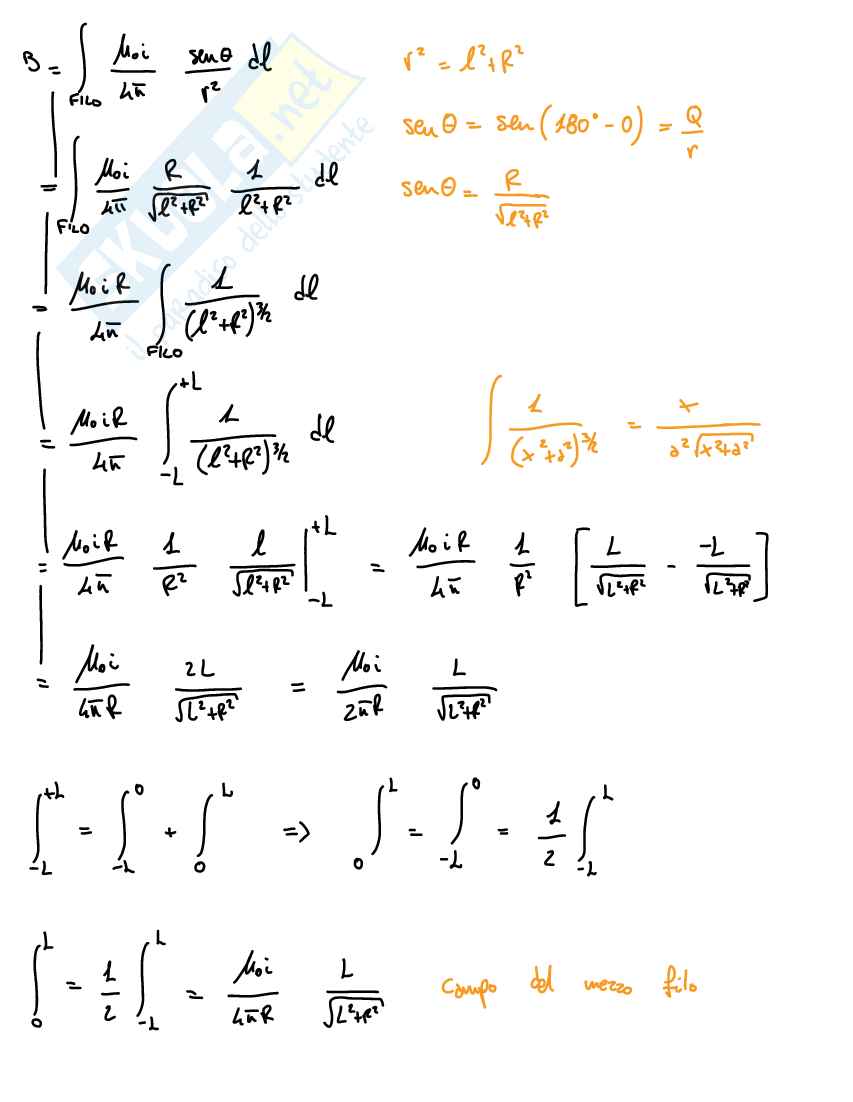 B = ∫_FILO μ₀i/4π senθ/r² dl
r² = l²+R²
senθ = sen(180°-0) = Q/r
= ∫_FILO μ₀i/4π R/√(l²+R²) 1/(l²+R²) dl
senθ = R/√(l²+R²)
= μ₀iR/4π ∫_FILO 1/(l²+R²)^(3/2) dl
= μ₀iR/4π ∫_-L^+L 1/(l²+R²)^(3/2) dl
∫ 1/(x²+a²)^(3/2) = x/(a²√(x²+a²))
= μ₀iR/4π 1/R² l/√(l²+R²) |_-L^+L = μ₀iR/4π 1/R² [L/√(L²+R²) - -L/√(L²+R²)]
= μ₀i/4πR 2L/√(L²+R²) = μ₀i/2πR L/√(L²+R²)
∫_-L^+L = ∫_-L^0 + ∫_0^L => ∫_0^L = ∫_-L^0 = 1/2 ∫_-L^L
∫_0^L = 1/2 ∫_-L^L = μ₀i/4πR L/√(L²+R²) campo del mezzo filo
SKUOLA.net